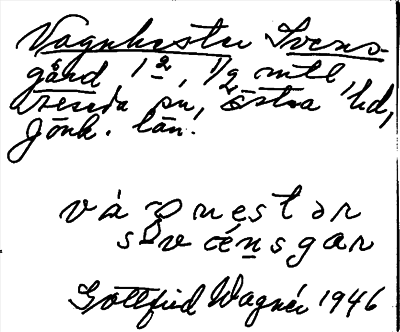 Vagnhester Svens-
gård 1 2, 1/2 mtl,
Svenarum sn, Östra hd,
Jönk. län.
vàgnestər
svénsgar
Gottfrid Wagnér 1946